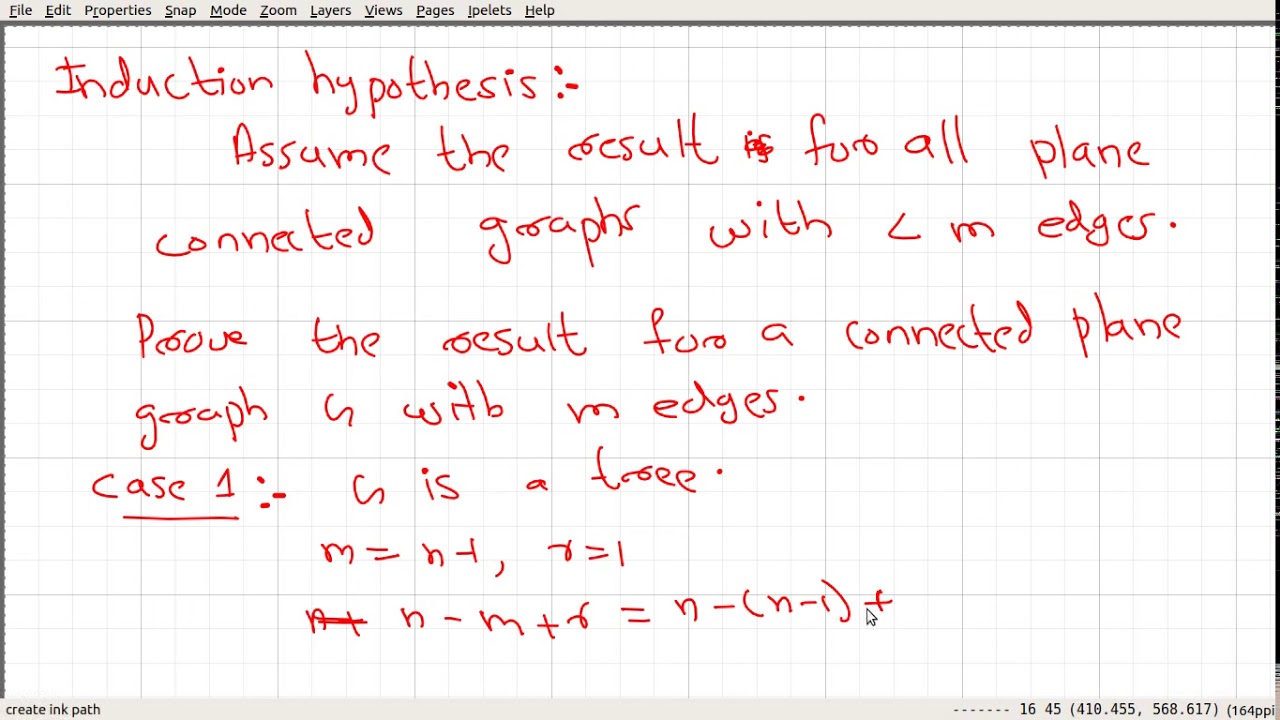 File Edit Properties Snap Mode Zoom Layers Views Pages Ipelets Help
Induction hypothesis :-
Assume the result for all plane
connected graphs with < m edges.
Prove the result for a connected plane
graph G with m edges.
Case 1 :- G is a tree.
m = n-1, r=1
n - m + r = n - (n-1) +
create ink path ------- 16 45 (410.455, 568.617) (164ppi